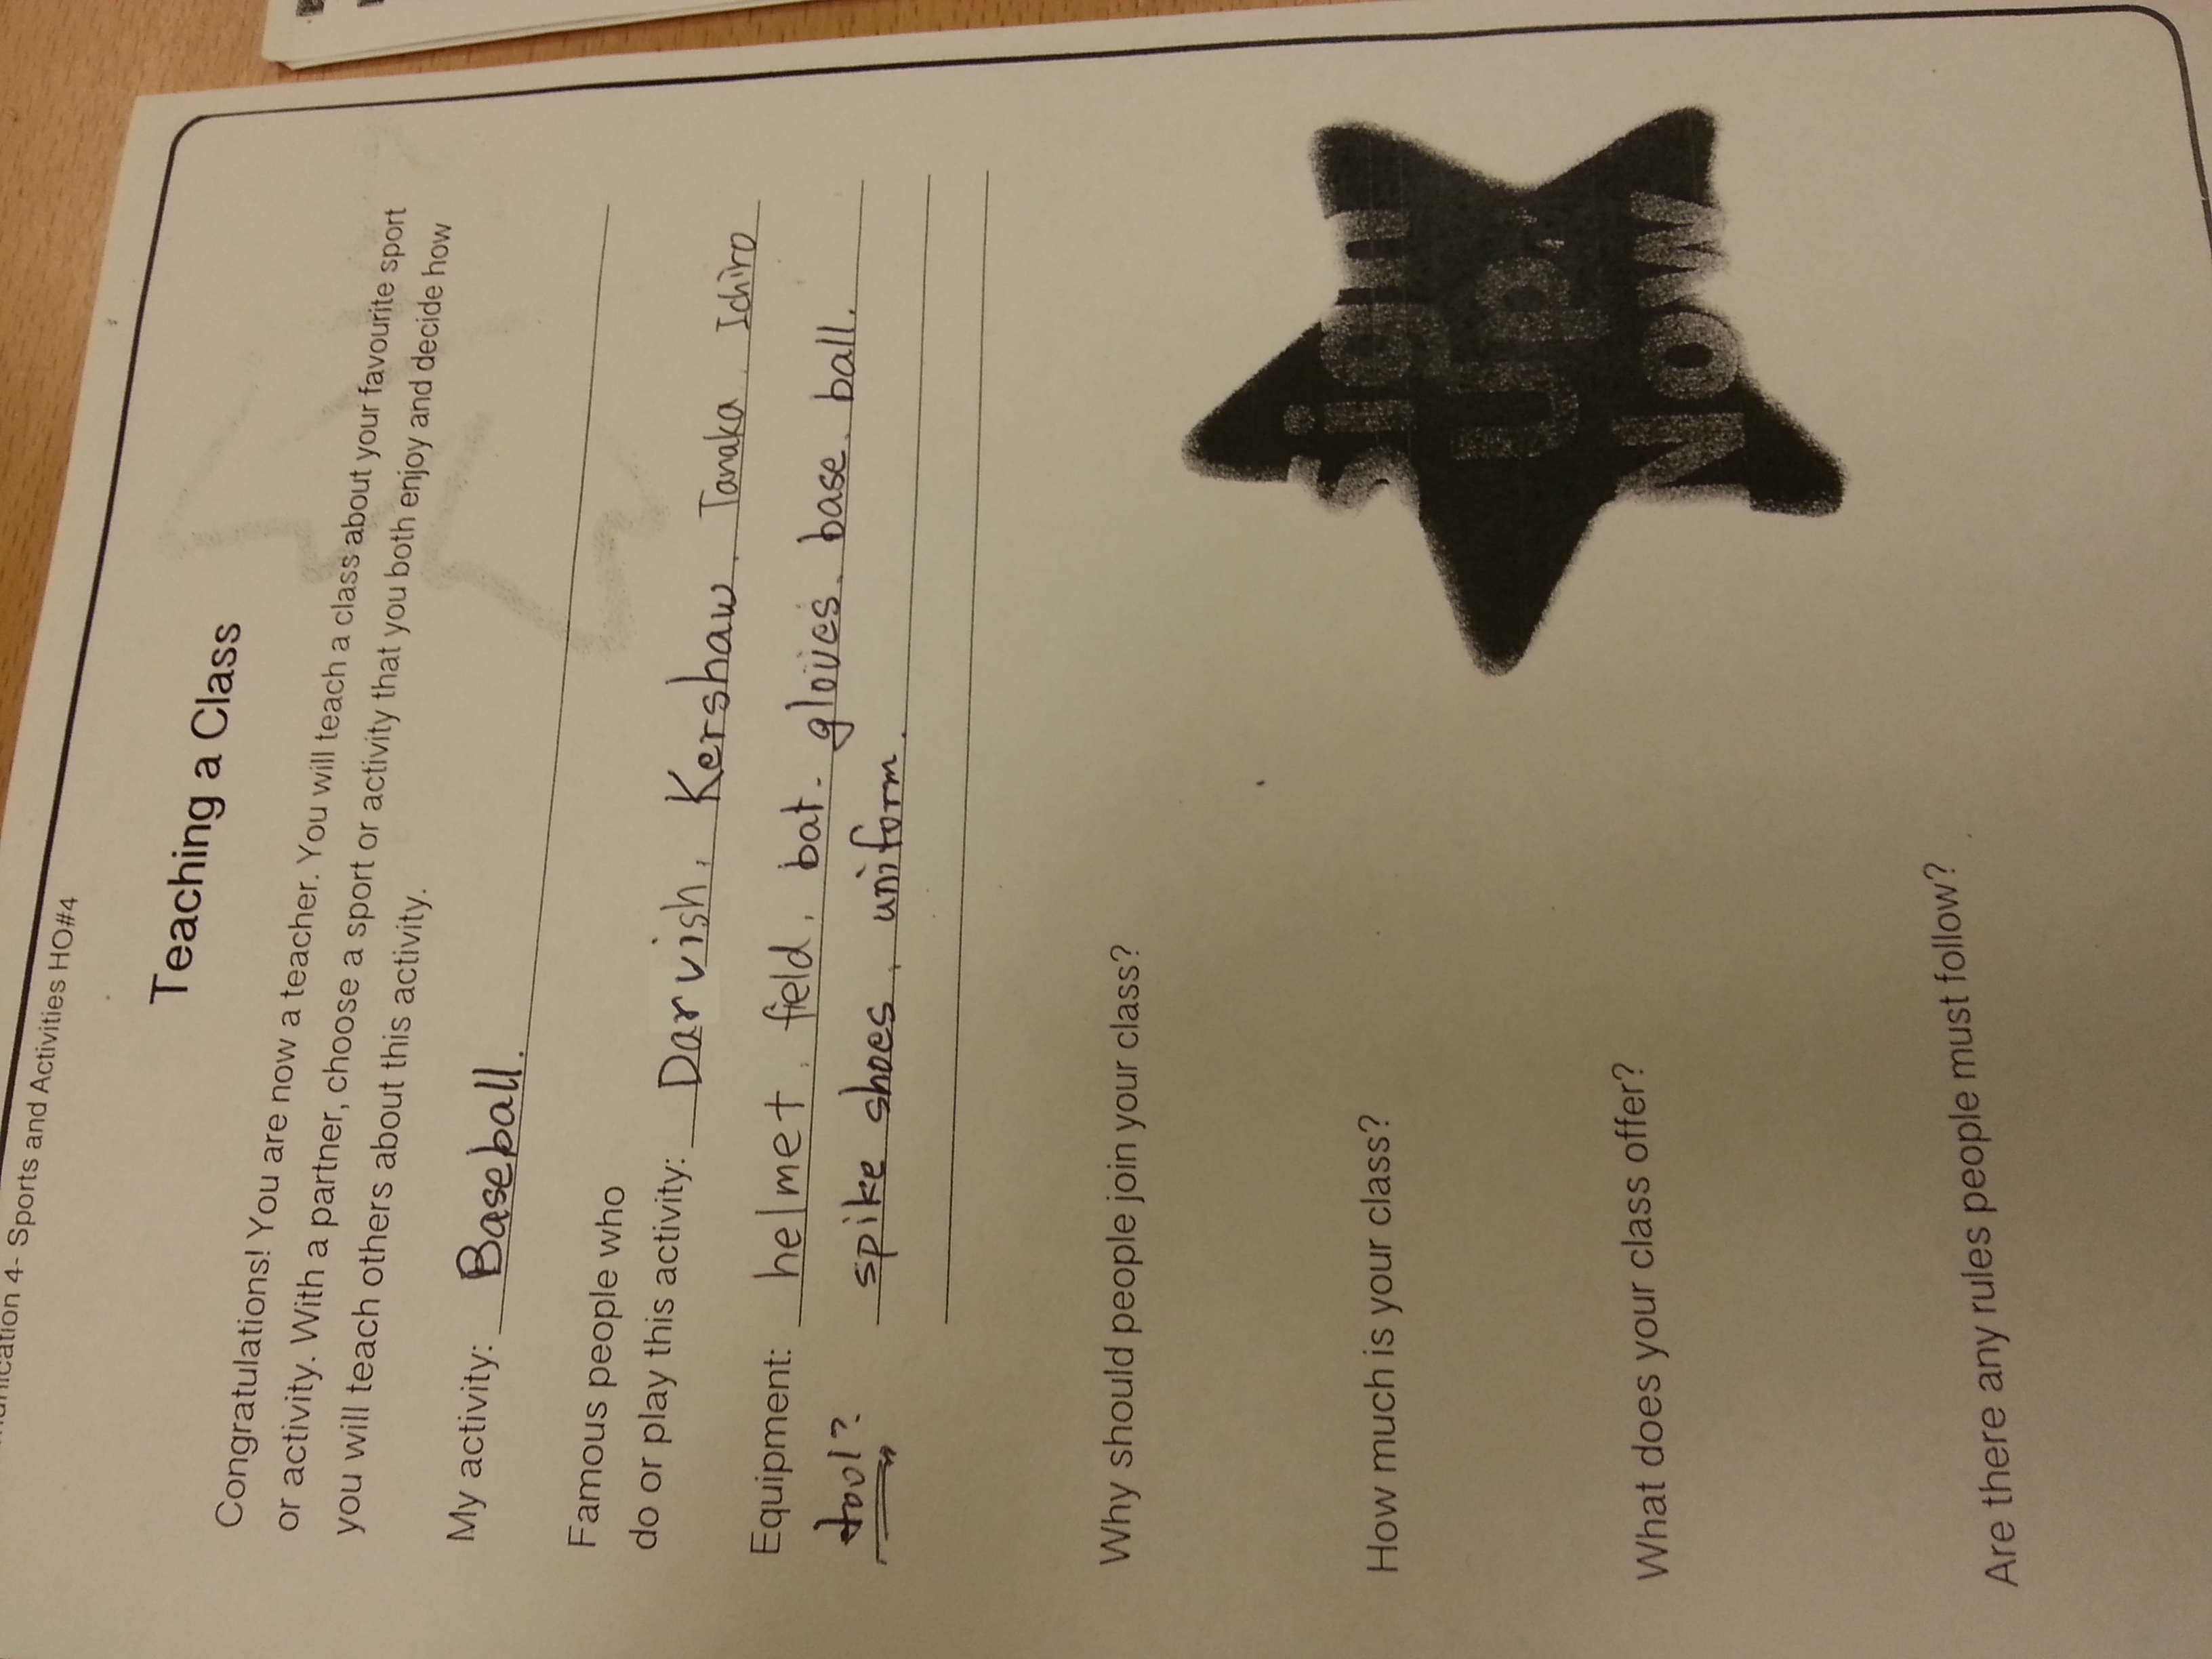 4- Sports and Activities HO#4
Teaching a Class
Congratulations! You are now a teacher. You will teach a class about your favourite sport
or activity. With a partner, choose a sport or activity that you both enjoy and decide how
you will teach others about this activity.
My activity: Baseball.
Famous people who
do or play this activity: Darvish, Kershaw, Tanaka, Ichiro
Equipment: helmet, field, bat, gloves, base, ball.
tool? spike shoes, uniform.
Why should people join your class?
How much is your class?
What does your class offer?
Are there any rules people must follow?
Sign
Up
Now